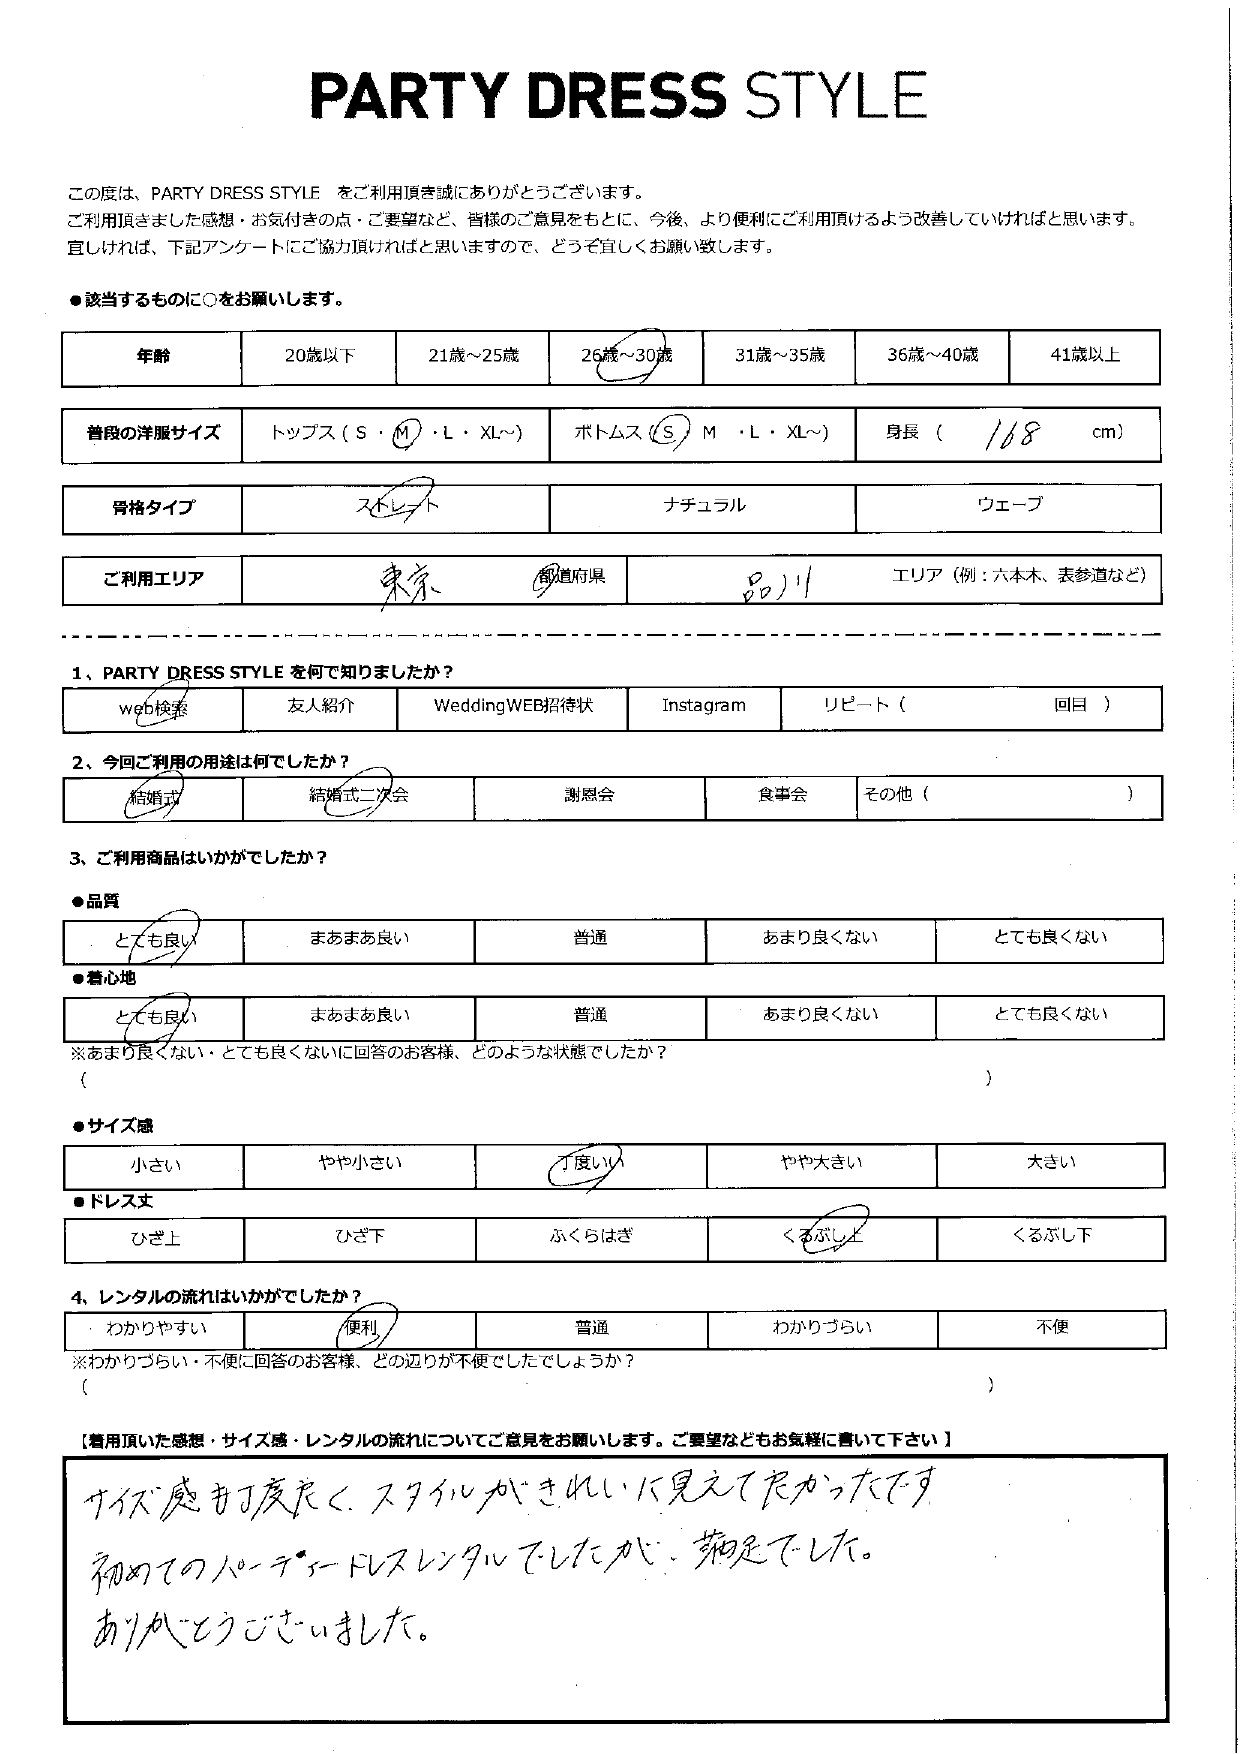 PARTY DRESS STYLE
この度は、PARTY DRESS STYLE をご利用頂き誠にありがとうございます。
ご利用頂きました感想・お気付きの点・ご要望など、皆様のご意見をもとに、今後、より便利にご利用頂けるよう改善していければと思います。
宜しければ、下記アンケートにご協力頂ければと思いますので、どうぞ宜しくお願い致します。
●該当するものに○をお願いします。
年齢 20歳以下 21歳～25歳 26歳～30歳 31歳～35歳 36歳～40歳 41歳以上
普段の洋服サイズ トップス ( S ・ M ・L ・ XL～) ボトムス ( S M ・L ・ XL～) 身長 ( 168 cm)
骨格タイプ ストレート ナチュラル ウェーブ
ご利用エリア 東京 都道府県 品川 エリア（例：六本木、表参道など）
1、PARTY DRESS STYLE を何で知りましたか？
web検索 友人紹介 WeddingWEB招待状 Instagram リピート（ 回目 ）
2、今回ご利用の用途は何でしたか？
結婚式 結婚式二次会 謝恩会 食事会 その他（ ）
3、ご利用商品はいかがでしたか？
●品質
とても良い まあまあ良い 普通 あまり良くない とても良くない
●着心地
とても良い まあまあ良い 普通 あまり良くない とても良くない
※あまり良くない・とても良くないに回答のお客様、どのような状態でしたか？
（ ）
●サイズ感
小さい やや小さい 丁度いい やや大きい 大きい
●ドレス丈
ひざ上 ひざ下 ふくらはぎ くるぶし上 くるぶし下
4、レンタルの流れはいかがでしたか？
わかりやすい 便利 普通 わかりづらい 不便
※わかりづらい・不便に回答のお客様、どの辺りが不便でしたでしょうか？
（ ）
【着用頂いた感想・サイズ感・レンタルの流れについてご意見をお願いします。ご要望などもお気軽に書いて下さい】
サイズ感も丁度良く、スタイルがきれいに見えて良かったです
初めてのパーティードレスレンタルでしたが、満足でした。
ありがとうございました。